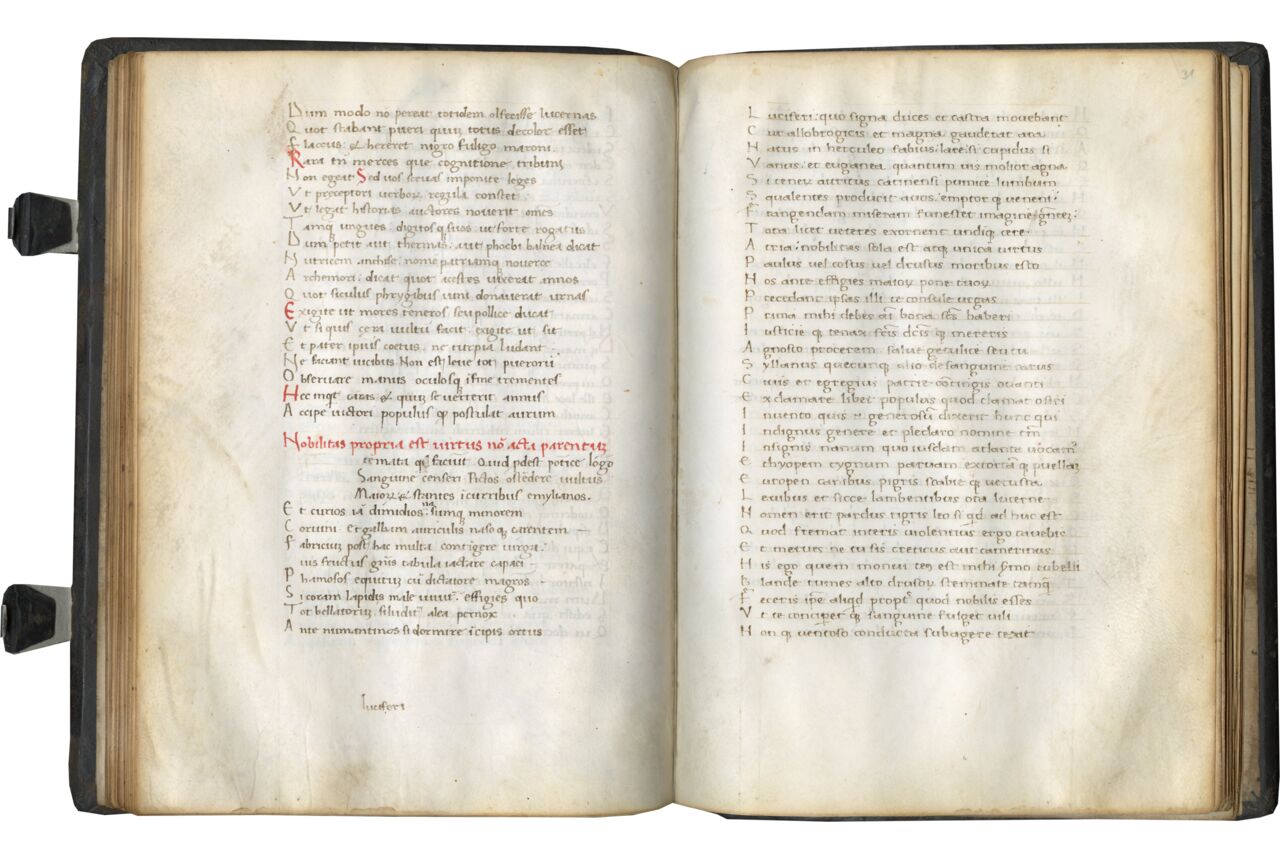 Dum modo nō pereat totidem olfecisse lucernas
Quot stabant pueri quum totus decolor esset
Flaccus & hereret nigro fuligo maroni.
Rara tn̄ merces que cognitione tribuni
Non egeat Sed vos sevas imponite leges
Vt preceptori verborꝫ regula constet
Vt legat historias auctores noverit om̄es
Tamqꝫ ungues digitosqꝫ suos ut forte rogatus
Dum petit aut thermas aut phoebi balnea dicat
Nutricem anchise nomē patriamqꝫ noverce
Archemori dicat quot acestes vixerat annos
Quot siculus phrygibus vini donaverat urnas
Exigite ut mores teneros seu pollice ducat
Vt si quis cera vultū facit exigite ut sit
Et pater ipsius coetus ne turpia ludant
Ne faciant vicibus Non est leve tot puerorū
Observare manus oculosqꝫ ī fine trementes
Hec inqt curas & quum se verterit annus
Accipe victori populus qꝫ postulat aurum
Nobilitas propria est virtus nō acta parentuꝫ
temata qd faciūt Quid pdest pōtice lōgo
Sanguine censeri Pictos ostēdere vultus
Maiorꝫ & stantes i curribus emylianos.
Et curios iā dimidios numqꝫ minorem
Corvini et galbam auriculis nasoqꝫ carentem
Fabricius post hac multa contigere virga
uis fructus gn̄is tabula iactare capaci
Phamosos equitum cū dictatore magros
Si coram lapidis male vivit effigies quo
Tot bellatorꝫ si ludit alea pernox
Ante numantinos si dormire icipis ortus
luciferi
31
Luciferi quo signa duces et castra movebant
Cur allobrogicis et magna gaudeat ara
Natus in herculeo fabius lare si cupidus si
Vanus et euganea quantum vis molior agna
Si tener attritus catinensi pumice lumbum
Squalentes producit avos emptor qꝫ veneni
Frangendam miseram funestet imagine gentē
Tota licet veteres exornent undiqꝫ cere
Atria nobilitas sola est atqꝫ unica virtus
Paulus vel cossus vel drusus moribus esto
Hos ante effigies maiorꝫ pone tuorꝫ
Precedant ipsas illi te consule virgas
Prima mihi debes ai bona scs haberi
Iusticie qꝫ tenax fcīs dcīs qꝫ mereris
Agnosco procerem salve getulice seu tu
Syllanus quecunqꝫ alio de sanguine ratus
Civis et egregius patrie contingis ovanti
Exclamare libet populus quod clamat osiri
Invento quis n generosū dixerit hunc qui
Indignus genere et preclaro nomine tm̄
Insignis nanum quoiusdam atlante vocamꝰ
Ethyopem cygnum parvam extortāqꝫ puellaꝫ
Europen canibus pigris scabieqꝫ vetusta
Levibus et sicce lambentibus ora lucerne
Nomen erit pardus tigris leo si qd ad huc est
Quod fremat in terris violentiꝰ ergo cavebis
Et metues ne tu sis creticus aut camerinus
His ego quem monui tecū est mihi sermo rubelli
Blande tumes alto drusorꝫ stemmate tamqꝫ
Feceris ipse aliqd propter quod nobilis esses
Vt te conciperet qꝫ sanguine fulget iuli
Non qꝫ ventoso conducta sub agere texat